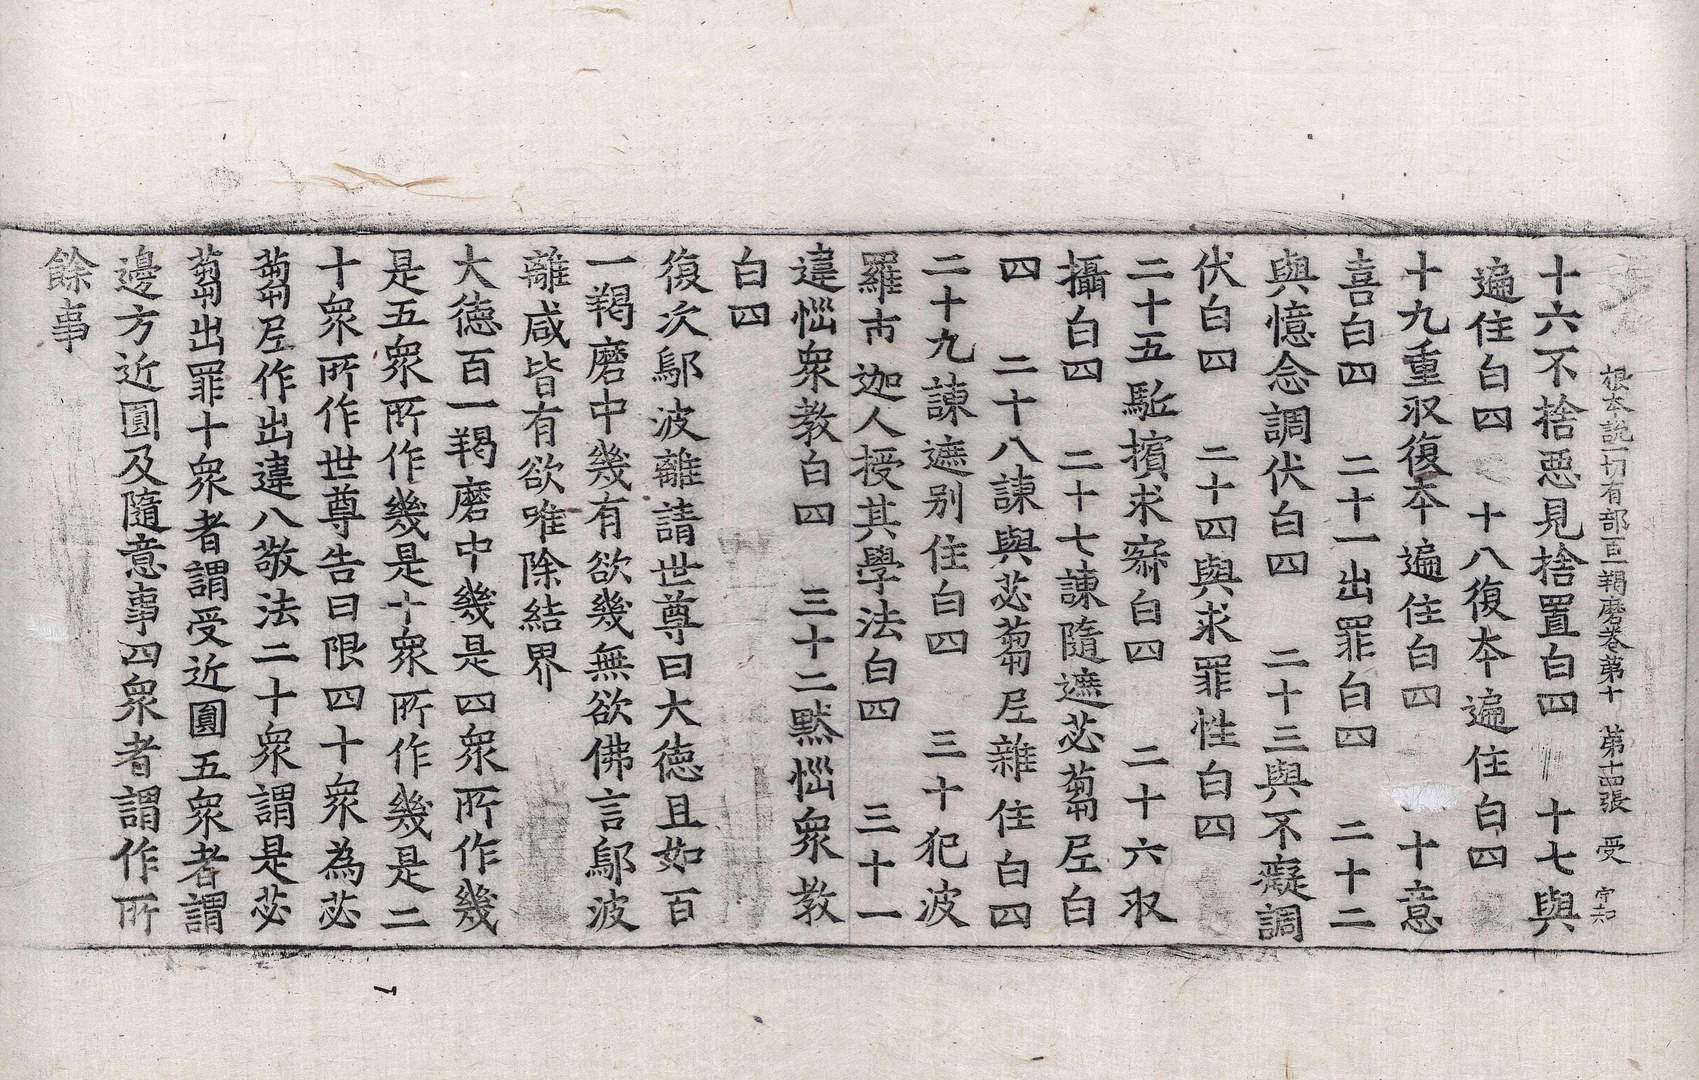 根本說一切有部百一羯磨卷第十　第十四張　受
十六不捨惡見捨置白四　十七與
遍住白四　十八復本遍住白四
十九重収復本遍住白四　十意
喜白四　二十一出罪白四　二十二
與憶念調伏白四　二十三與不癡調
伏白四　二十四與求罪性白四
二十五駈擯求寂白四　二十六収
攝白四　二十七諫隨遮苾蒭尼白
四　二十八諫與苾蒭尼雜住白四
二十九諫遮別住白四　三十犯波
羅市迦人授其學法白四　三十一
違惱衆教白四　三十二黙惱衆教
白四
復次鄔波離請世尊曰大德且如百
一羯磨中幾有欲幾無欲佛言鄔波
離咸皆有欲唯除結界
大德百一羯磨中幾是四衆所作幾
是五衆所作幾是十衆所作幾是二
十衆所作幾是四十衆所作世尊告曰限四十衆為苾
蒭尼作出違八敬法二十衆謂是苾
蒭出罪十衆者謂受近圓五衆者謂
邊方近圓及隨意事四衆者謂作所
餘事